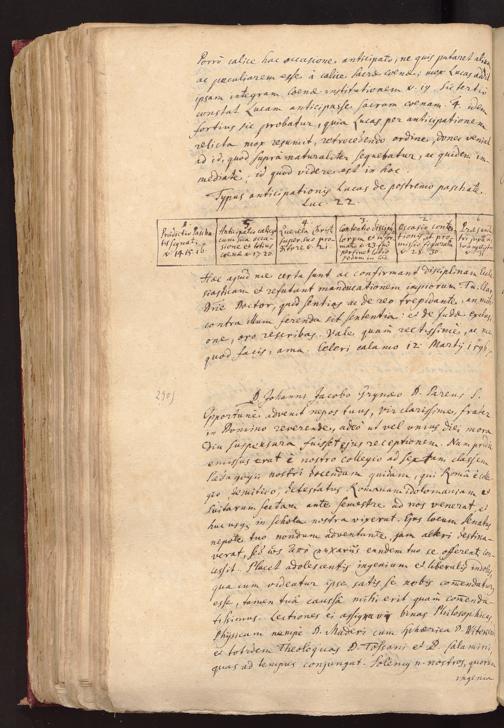 Porrò calice hac occasione anticipato, ne quis putaret aliam
ac peculiarem esse à calice sacrae coenae, mox Lucas addit
ipsam integram Coenae institutionem v. 19. Sic tertiò
constat Lucam anticipasse sacram coenam. 4. idem
fortius sic probatur, quia Lucas per anticipationem
relicta mox resumit, retrocedendo ordine, donec veniat
ad id, quod supra naturaliter sequebatur, ac quidem im-
mediatè, id quod videre est in hoc
Typus anticipationis Lucae de postremo paschate.
Luc. 22
1 Praedictio Pascha-
tis v. 14. 15. 16.
5 Anticipatio calicis
cum sua occa-
sione et totius
coenae v. 17. 20
4 Querela Christi
super suo pro-
ditore v. 21
3
v. 23
2 Occasio
v. 24. 30.
6
Haec apud me certa sunt ac confirmant disciplinam Eccle-
siasticam et refutant manducationem impiorum. Tu, Mar-
 Doctor, quid sentias ac de reo trepidante, an
contra illum ferenda sit sententia: et de
one, oro rescribas. Vale quam rectissimè, ac me
quod facis, ama. Celeri calamo 12 Martij 1596.
D. Johanni Jacobo Grynaeo D. Pareus S.
Opportunè advenit nepos tuus, vir clarissime, frater
in Domino reverende, adeò ut vel unius diei mora
diu suspensura fuisset ejus receptionem. Nam pridie
emissus erat è nostro collegio ad sextam classem
Paedagogij nostri docendam quidam, qui Româ è colle-
gio Jesuitico, detestatus Romanam idolomaniam et
 sectam ante semestre ad nos venerat et
hucusque in schola nostra vixerat. Ejus locum Senatus
nepote tuo nondum adventante, jam alteri destina-
verat, sed eundem tuo se offerenti con-
cessit. Placet adolescentis ingenium et liberalis indoles
qua cum videatur ipse satis se nobis commendaturus
esse, tamen tuâ caussâ mihi erit quàm commenda-
tissimus. Lectiones ei assignavi binas Philosophicas
Physicam nempe D. cum Sphaerica D.
et totidem Theologicas D. Tossani et D.
quas ad tempus conjungat. Solemus n. nostros, quorum
ingenia